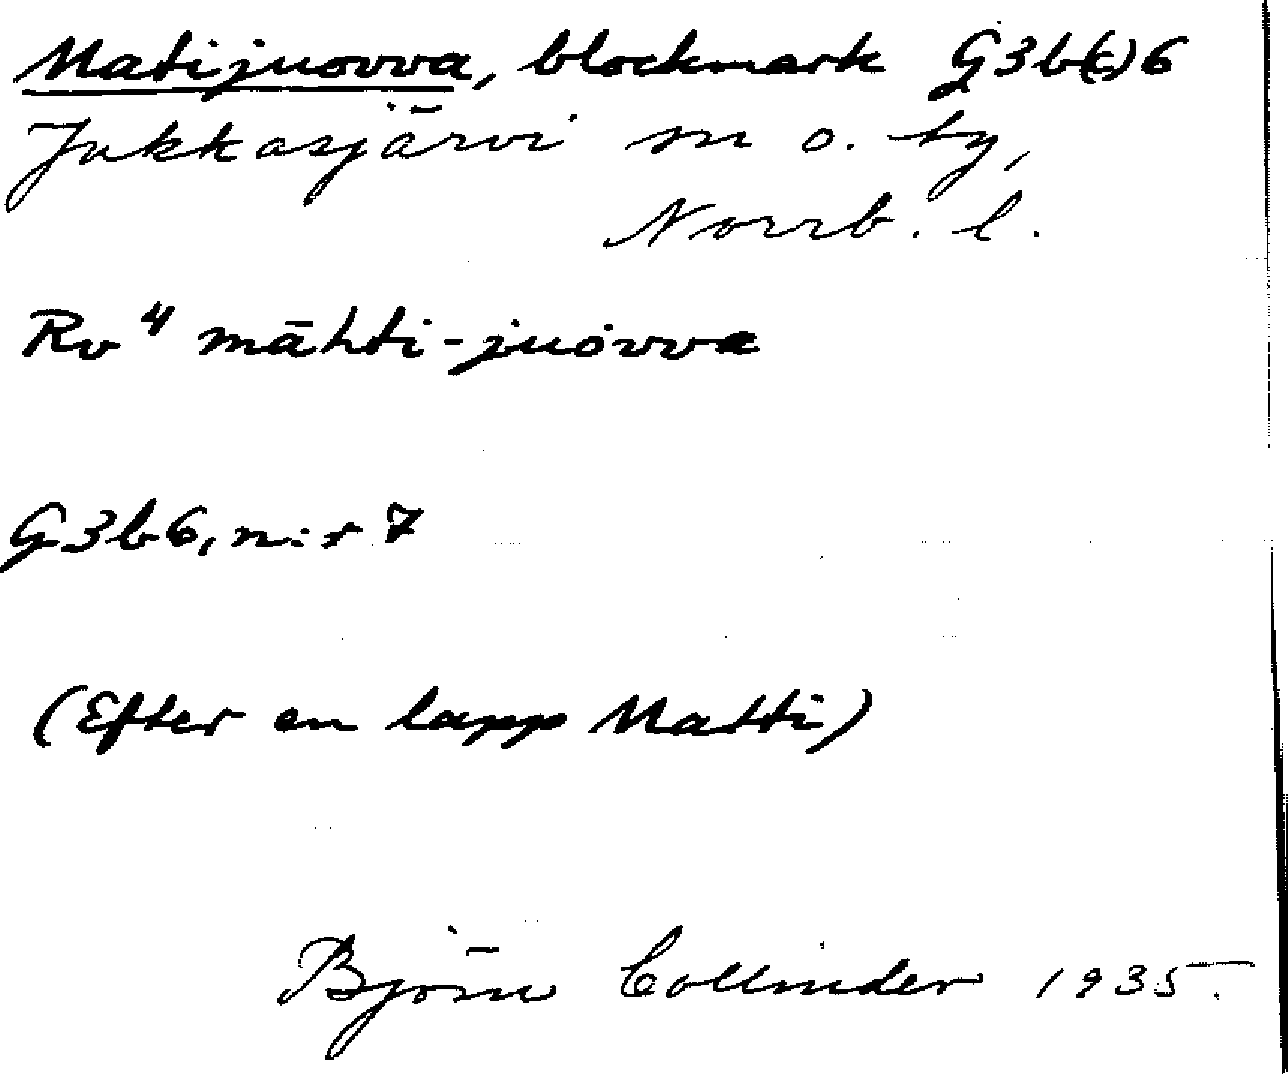 Matijuovva, blockmark G3b(c)6
Jukkasjärvi sn o. by,
Norrb. l.
Rv⁴ māhti-juovva
G3b6, n:r 7
(Efter en lapp Matti)
Björn Collinder 1935.